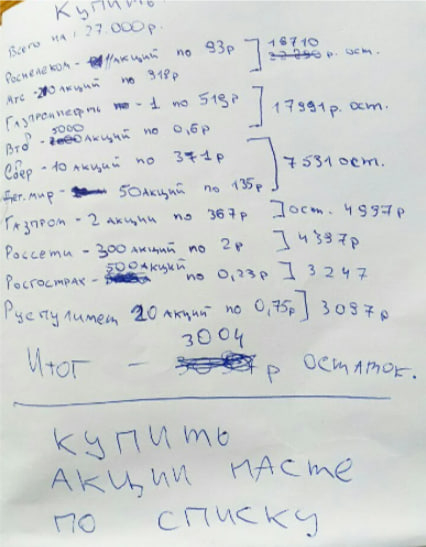 КУПИТЬ
Всего на: 27.000р.
Ростелеком - 11 акций по 93р ] 18710 р. ост.
Мтс - 20 акций по 318р
Газпромнефть - 1 по 519р ] 17991р. ост.
Втб - 5000 акций по 0,6р
Сбер - 10 акций по 371р ] 7531 ост.
Дет. мир - 50 акций по 135р
Газпром - 2 акции по 367р ] ост. 4997р
Россети - 300 акций по 2р ] 4397р
Росгострах - 500 акций по 0,23р ] 3247
Русполимет 20 акций по 0,75р ] 3097р
3004
Итог - р остаток.
КУПИТЬ
АКЦИИ НАСТЕ
ПО СПИСКУ